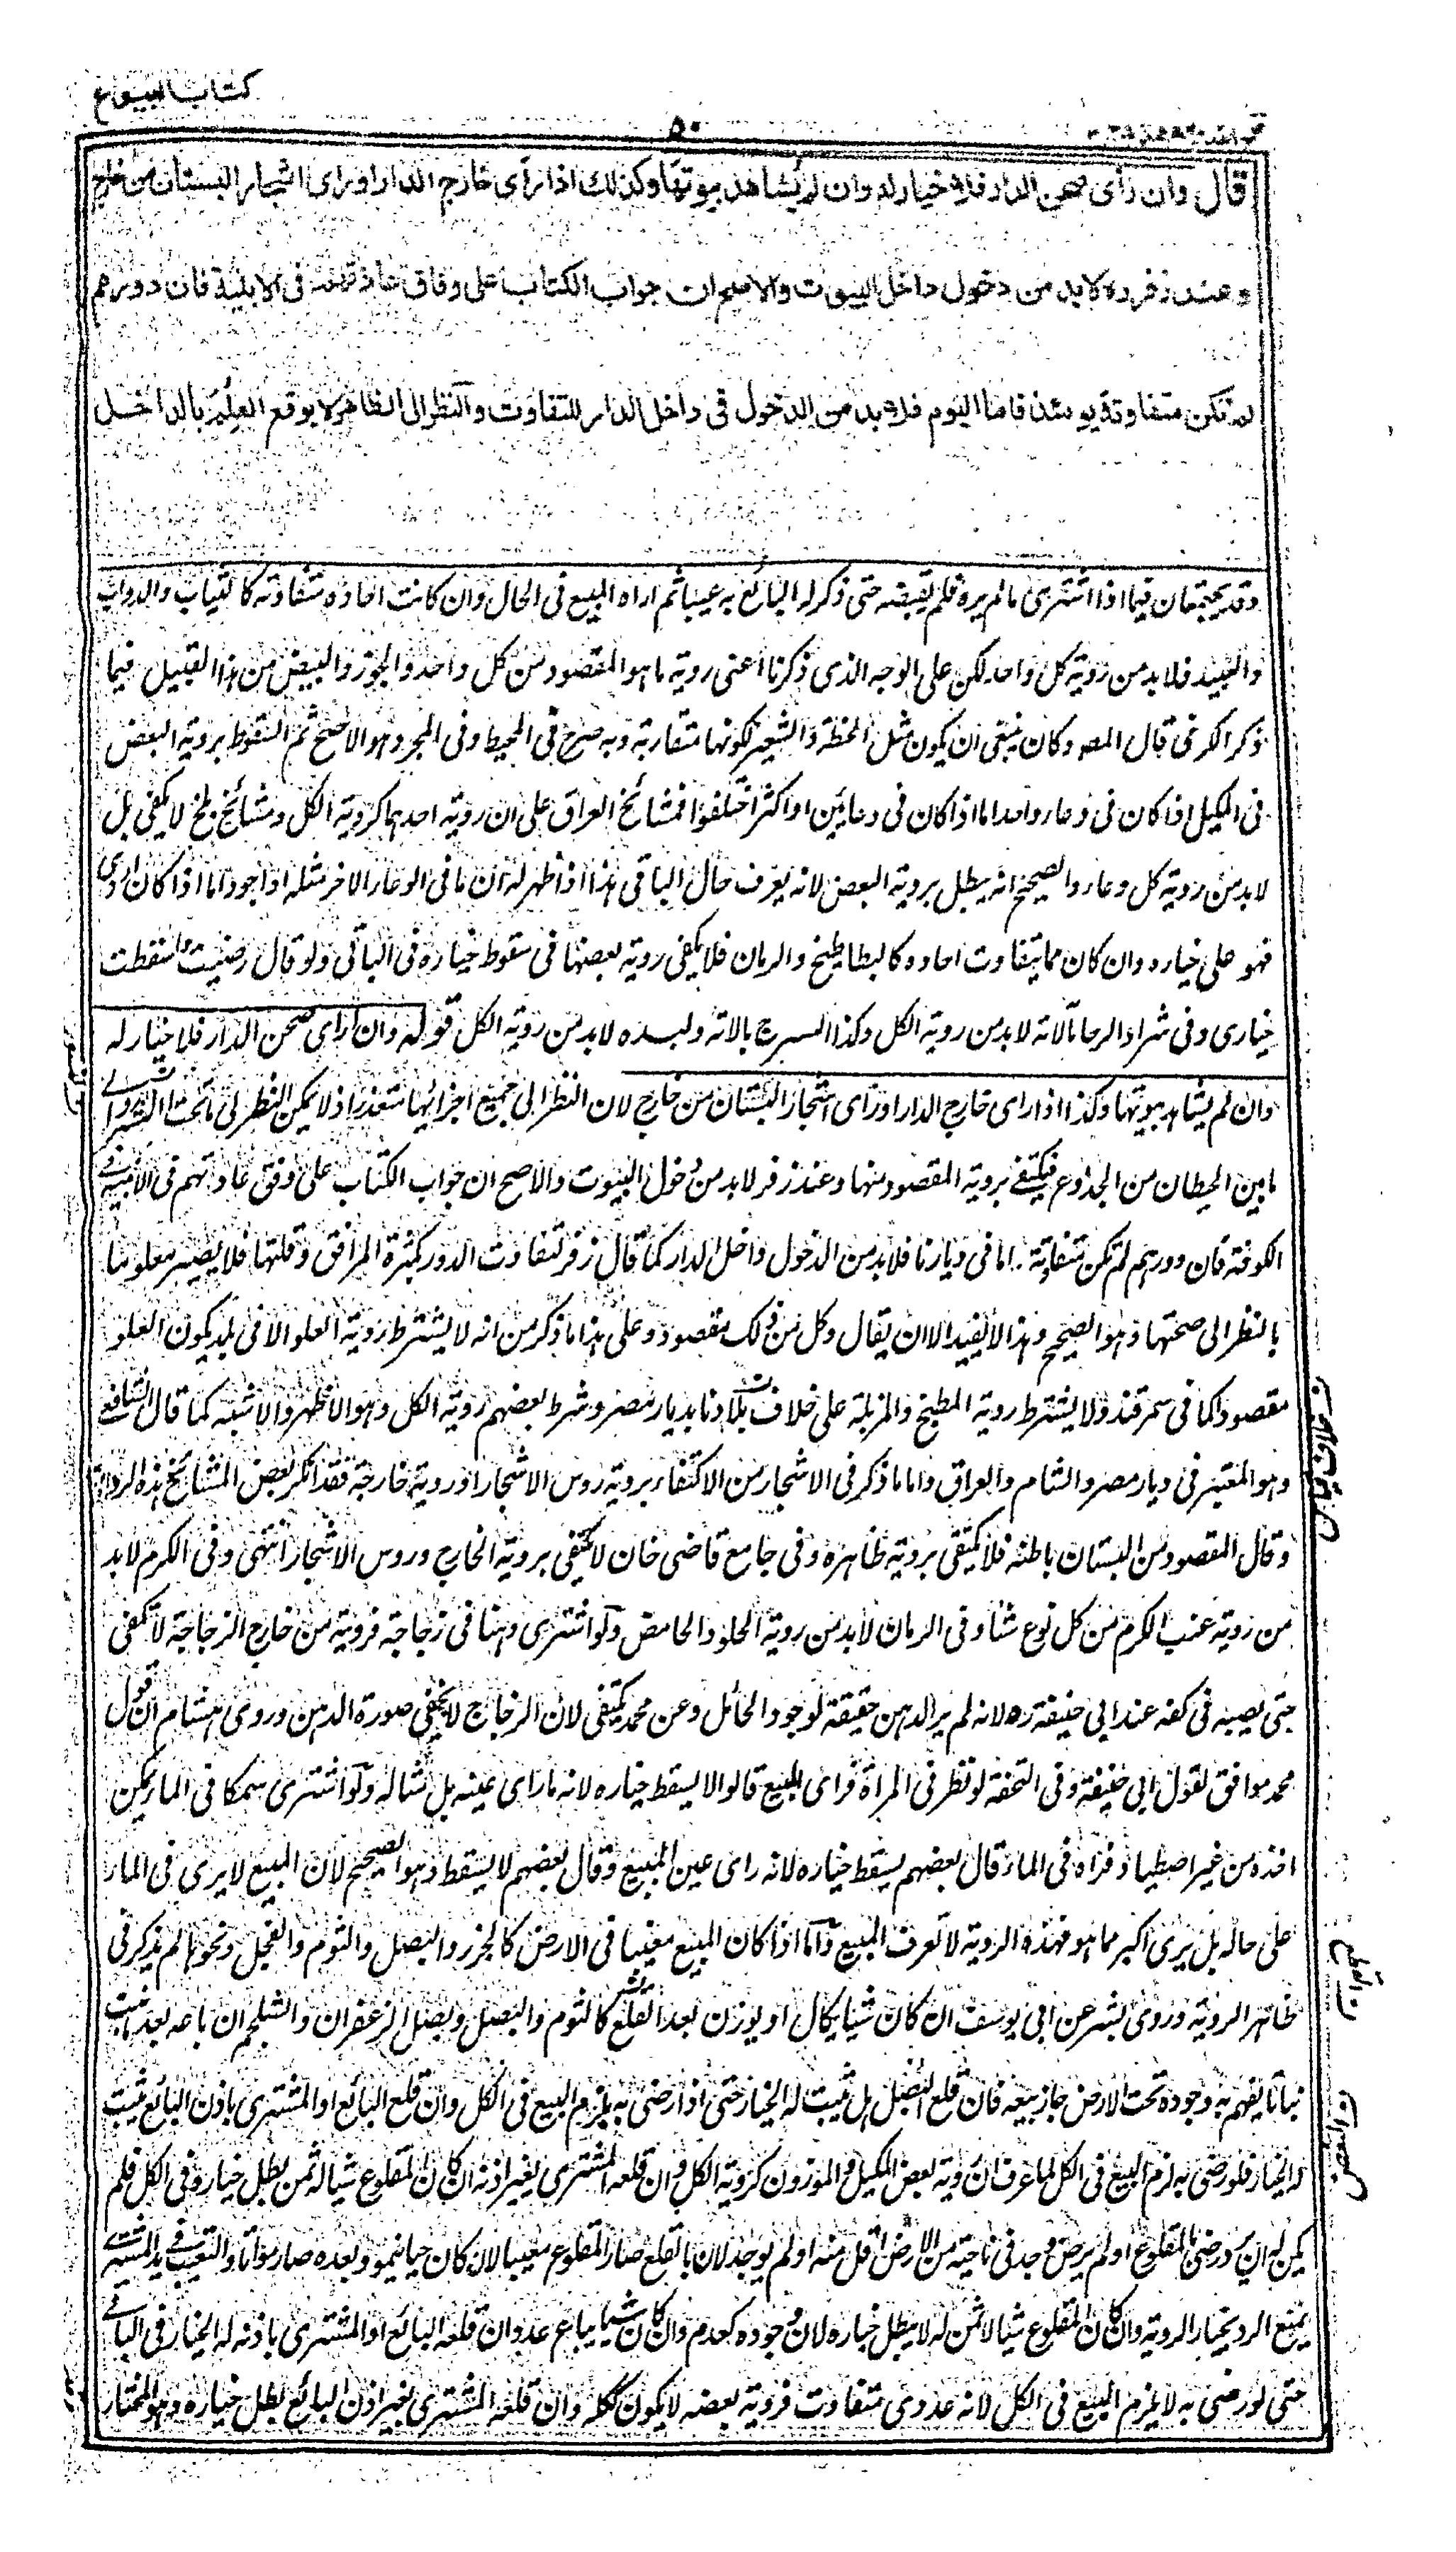 كتاب البيوع
٥٠
قال وان رأى صحن الدار فلا خيار له وان لم يشاهد بيوتها وكذلك اذا رأى خارج الدار او رأى اشجار البستان من خارج
وعند زفر ره لا بد من دخول داخل البيوت والاصح ان جواب الكتاب على وفاق عادتهم فى الابنية فان دورهم
لم تكن متفاوتة يومئذ فاما اليوم فلا بد من الدخول فى داخل الدار للتفاوت والنظر الى الظاهر لا يوقع العلم بالداخل
وقد يجتمعان فيما اذا اشترى مالم يره فلم يقبضه حتى ذكر له البائع به عيبا ثم اراه المبيع فى الحال وان كانت احاده متفاوتة كالثياب والدواب
والعبيد فلا بد من روية كل واحد لكن على الوجه الذى ذكرنا اعنى روية ما هو المقصود من كل واحد والجوز والبيض من هذا القبيل فيما
ذكر الكرخى قال المصر وكان ينبغى ان يكون مثل الحنطة والشعير لكونها متقاربة وبه صرح فى المحيط وفى المجرد وهو الاصح ثم السقوط بروية البعض
فى المكيل اذا كان فى وعاء واحد اما اذا كان فى وعائين او اكثر اختلفوا فمشائخ العراق على ان روية احدهما كروية الكل ومشائخ بلخ لا يكفى بل
لا بد من روية كل وعاء والصحيح انه يبطل بروية البعض لانه يعرف حال الباقى هذا اذا ظهر له ان ما فى الوعاء الاخر مثله او اجود اما اذا كان اردى
فهو على خياره وان كان مما يتفاوت احاده كالبطاطيخ والرمان فلا يكفى روية بعضها فى سقوط خياره فى الباقى ولو قال رضيت واسقطت
خيارى وفى شراء الرحا بآلاته لا بد من روية الكل وكذا السرج بالاته ولبده لا بد من روية الكل قوله وان رأى صحن الدار فلا خيار له
وان لم يشاهد بيوتها وكذا اذا راى خارج الدار او رأى اشجار البستان من خارج لان النظر الى جميع اجزائها متعذر اذ لا يمكن النظر الى ما تحت السرر والى
ما بين الحيطان من الجذوع فيكتفى بروية المقصود منها وعند زفر لا بد من دخول البيوت والاصح ان جواب الكتاب على وفق عادتهم فى الابنية فى
الكوفة فان دورهم لم تكن متفاوتة اما فى ديارنا فلا بد من الدخول داخل الدار كما قال زفر لتفاوت الدور بكثرة المرافق وقلتها فلا يصير معلوما
بالنظر الى صحنها وهو الصحيح وهذا لا يفيد الا ان يقال وكل من ذلك مقصود وعلى هذا ما ذكر من انه لا يشترط روية العلو الا فى بلد يكون العلو
مقصودا كما فى سمرقند ولا يشترط روية المطبخ والمزبلة على خلاف بلادنا بديار مصر وشرط بعضهم روية الكل وهو الاظهر والاشبه كما قال الشافعى
وهو المعتبر فى ديار مصر والشام والعراق واما ما ذكر فى الاشجار من الاكتفاء بروية روس الاشجار او روية خارجه فقد انكر بعض المشائخ هذه الرواية
وقال المقصود من البستان باطنه فلا يكتفى بروية ظاهره وفى جامع قاضى خان لا يكتفى بروية الخارج وروس الاشجار انتهى وفى الكرم لا بد
من روية عنب الكرم من كل نوع شيئا وفى الرمان لا بد من روية الحلو والحامض ولو اشترى دهنا فى زجاجة فرويته من خارج الزجاجة لا تكفى
حتى يصبه فى كفه عند ابى حنيفة ره لانه لم ير الدهن حقيقة لوجود الحائل وعن محمد يكفى لان الزجاج لا يخفى صورة الدهن وروى هشام ان قول
محمد موافق لقول ابى حنيفة وفى التحفة لو نظر فى المرآة فراى المبيع قالوا لا يسقط خياره لانه ما راى عينه بل مثاله ولو اشترى سمكا فى الماء يمكن
اخذه من غير اصطياد فراه فى الماء قال بعضهم يسقط خياره لانه راى عين المبيع وقال بعضهم لا يسقط وهو الصحيح لان المبيع لا يرى فى الماء
على حاله بل يرى اكبر مما هو فهذه الروية لا تعرف المبيع واما اذا كان المبيع مغيبا فى الارض كالجزر والبصل والثوم والفجل ونحوها لم يذكر فى
ظاهر الرواية وروى بشر عن ابى يوسف ان كان شيئا يكال او يوزن بعد القلع كالثوم والبصل وبصل الزعفران والشلجم ان باعه بعد ما نبت
نباتا يفهم به وجوده تحت الارض جاز بيعه فان قلع البصل هل يثبت له الخيار حتى اذا رضى به يلزم البيع فى الكل وان قلع البائع او المشترى باذن البائع يثبت
له الخيار فلو رضى به لزم البيع فى الكل لما عرف ان روية بعض المكيل والموزون كروية الكل وان قلعه المشترى بغير اذنه ان كان المقلوع شيئا له ثمن بطل خياره فى الكل فلم
يكن له ان يرد رضى المقلوع او لم يرض وجد فى ناحية من الارض اقل منه او لم يوجد لان بالقلع صار المقلوع معيبا لانه كان حيا ينمو وبعده صار مواتا والتعيب فى يد المشترى
يمنع الرد بخيار الروية وان كان المقلوع شيئا لا ثمن له لا يبطل خياره لان وجوده كعدمه وان كان شيئا يباع عددا وان قلعه البائع او المشترى باذنه له الخيار فى الباقى
حتى لو رضى به لا يلزم البيع فى الكل لانه عددى متفاوت فروية بعضه لا يكون ككله وان قلعه المشترى بغير اذن البائع بطل خياره وهو المختار